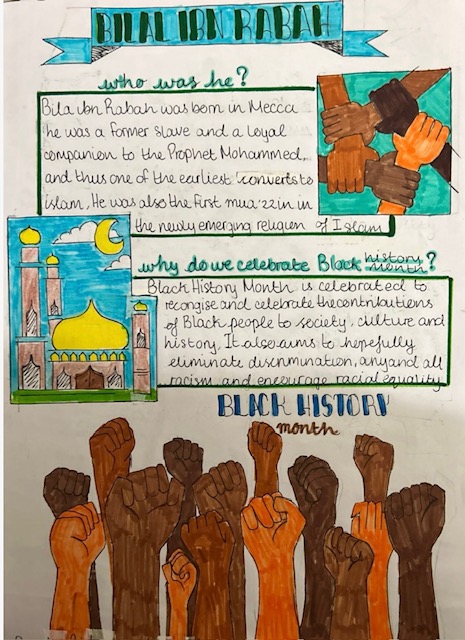 BILAL IBN RABAH
who was he?
Bila Ibn Rabah was born in Mecca
he was a former slave and a loyal
companion to the Prophet Mohammed,
and thus one of the earliest converts to
islam. He was also the first mua'zzin in
the newly emerging religion of Islam
why do we celebrate Black history month?
Black History Month is celebrated to
recongise and celebrate the contributions
of Black people to society, culture and
history. It also aims to hopefully
eliminate discrimination, any and all
racism and encourage racial equality
BLACK HISTORY
month